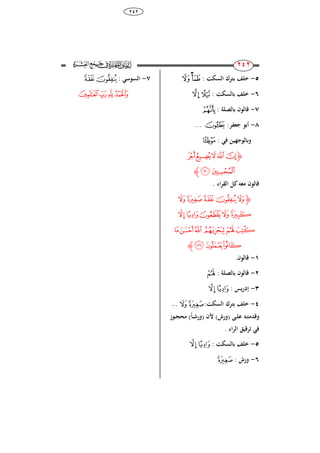 ٢٤٢
٢٤٢
٥- خلف بترك السكت : ظَمَأٌ وَلَا
٦- خلف بالسكت : نَّيْلًا إِلَّا
٧- قالون بالصلة : بِأَنَّهُمُۥ
٨- أبو جعفر: يَطَـُٔونَ ...
وبالوجهين في : مَوْطِئًا
﴿ إِنَّ اللَّهَ لَا يُضِيعُ أَجْرَ
الْمُحْسِنِينَ ١٢٠ ﴾
قالون معه كل القراء .
﴿ وَلَا يُنفِقُونَ نَفَقَةً صَغِيرَةً وَلَا
كَبِيرَةً وَلَا يَقْطَعُونَ وَادِيًا إِلَّا
كُتِبَ لَهُمْ لِيَجْزِيَهُمُ اللَّهُ أَحْسَنَ مَا
كَانُوا يَعْمَلُونَ ١٢١ ﴾
١- قالون.
٢- قالون بالصلة : لَهُمُۥ
٣- إدريس : وَادِيًا إِلَّا
٤- خلف بترك السكت: صَغِيرَةً وَلَا ...
وقدمته على (ورش) لأن (ورشاً) محجوز
في ترقيق الراء .
٥- خلف بالسكت : وَادِيًا إِلَّا
٦- ورش : صَغِيرَةً
٧- السوسي : يُنفِقُونَ نَفَقَةً
وَالْحَمْدُ لِلَّهِ رَبِّ الْعَالَمِينَ